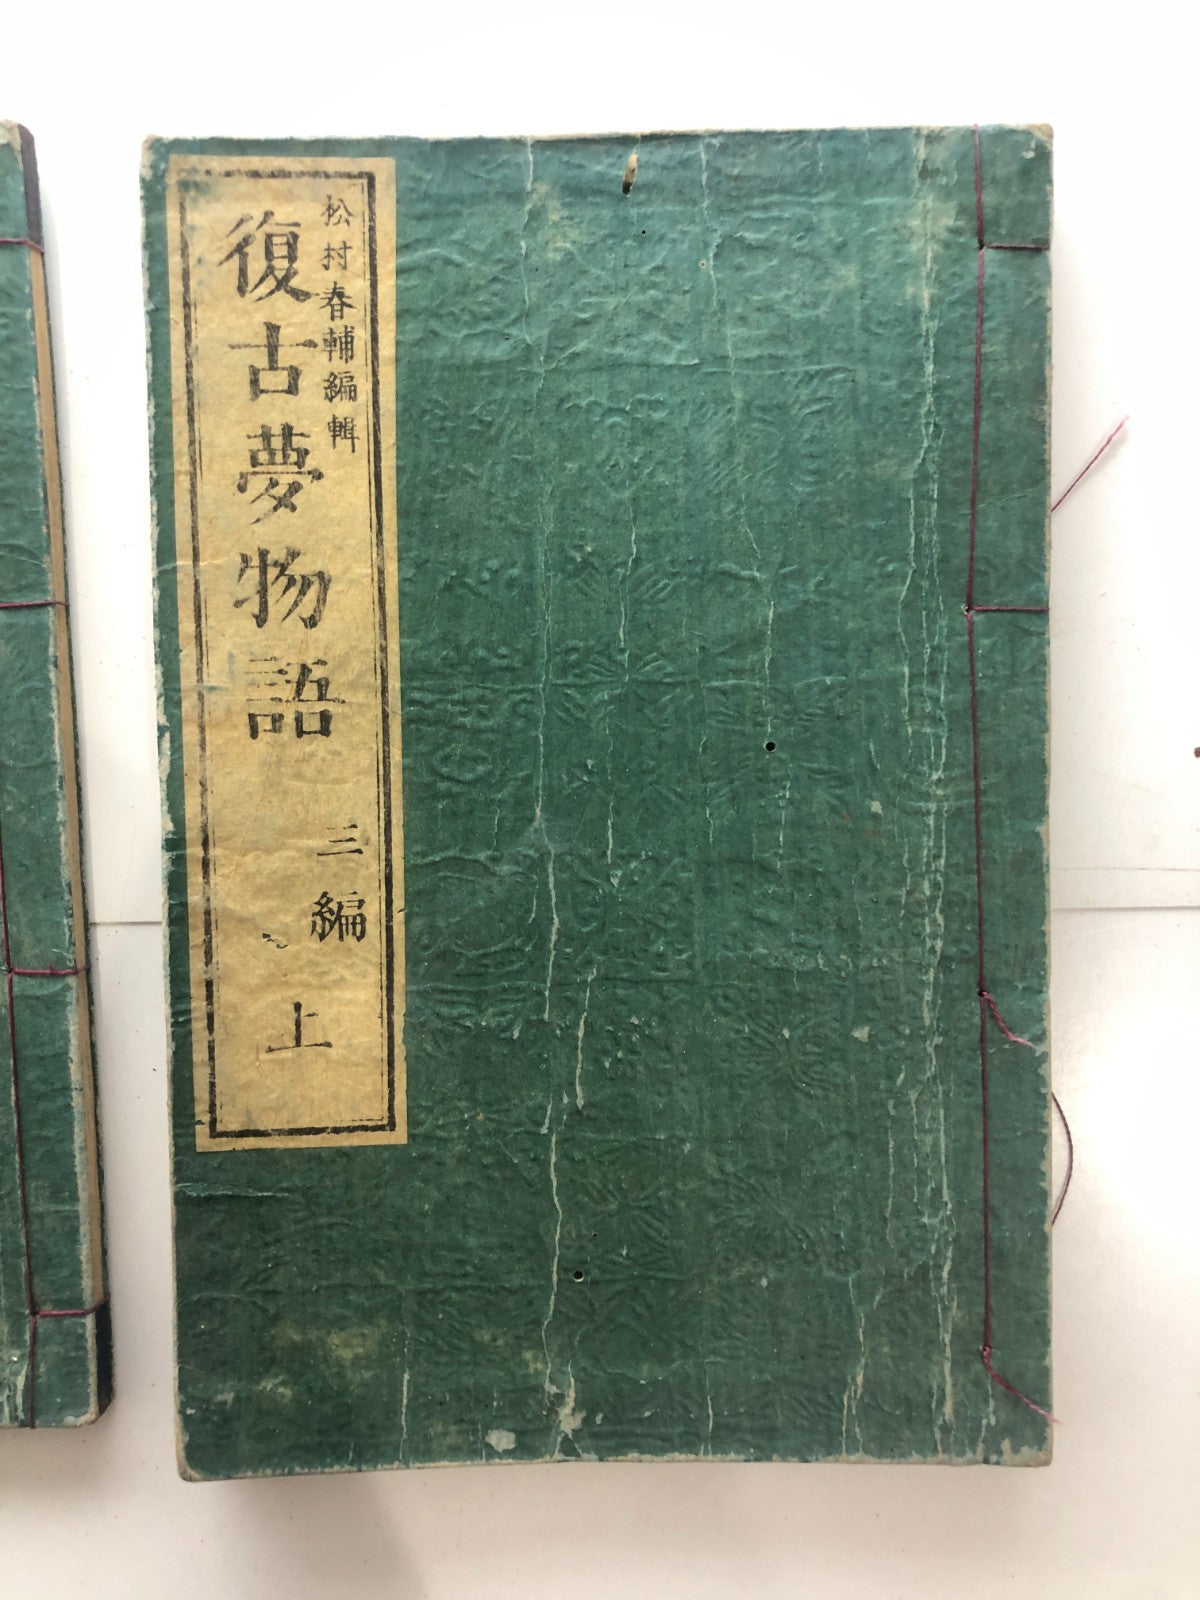 松村春輔編輯
復古夢物語
三編
上